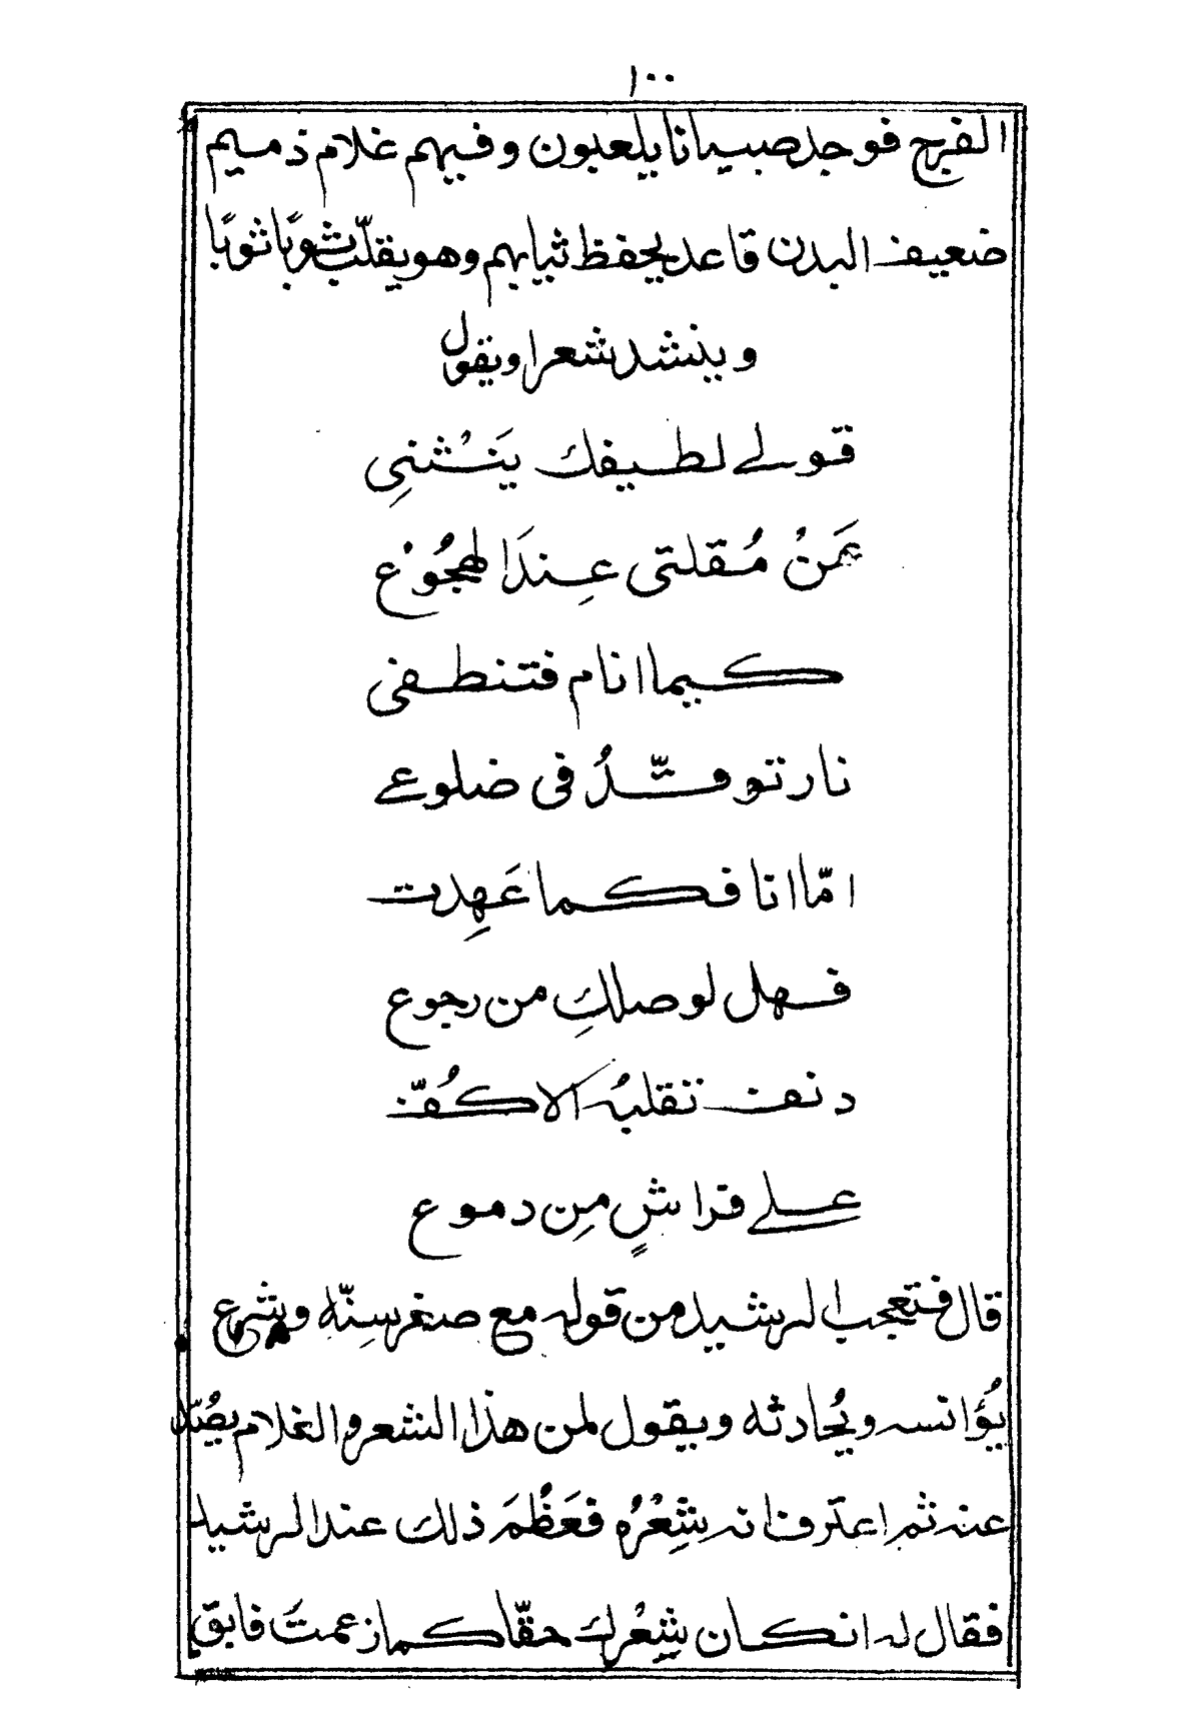 ١٠٠
الفرج فوجد صبيانا يلعبون وفيهم غلام ذميم
ضعيف البدن قاعد يحفظ ثيابهم وهو يقلّب ثوبًا ثوبًا
وينشد شعرا ويقول
قولے لطيفك يَنْثنىِ
عَمَنْ مُقلتى عِندَ الهجُوْع
كيما انام فتنطفى
نار توقّدُ فى ضلوعے
امّا انا فكما عَهِدت
فهل لوصلكِ من رجوع
دنف تقلبهُ الاكُفّ
علے فراشٍ مِن دموع
قال فتعجب الرشيد من قوله مع صغر سِنّه وشرع
يُؤانسه ويُحادثه ويقول لمن هذا الشعر والغلام يصُدّ
عنه ثم اعترف انه شِعْرُه فعَظُمَ ذلك عند الرشيد
فقال له انكان شِعْرك حقّا كما زعمتَ فابق